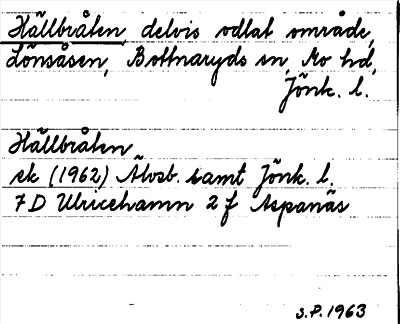 Hällbråten, delvis odlat område,
Lönsåsen, Bottnaryds sn, Mo hd,
Jönk. l.
Hällbråten
ek (1962) Älvsb. samt Jönk. l.
7 D Ulricehamn 2 f Aspanäs
S.P. 1963